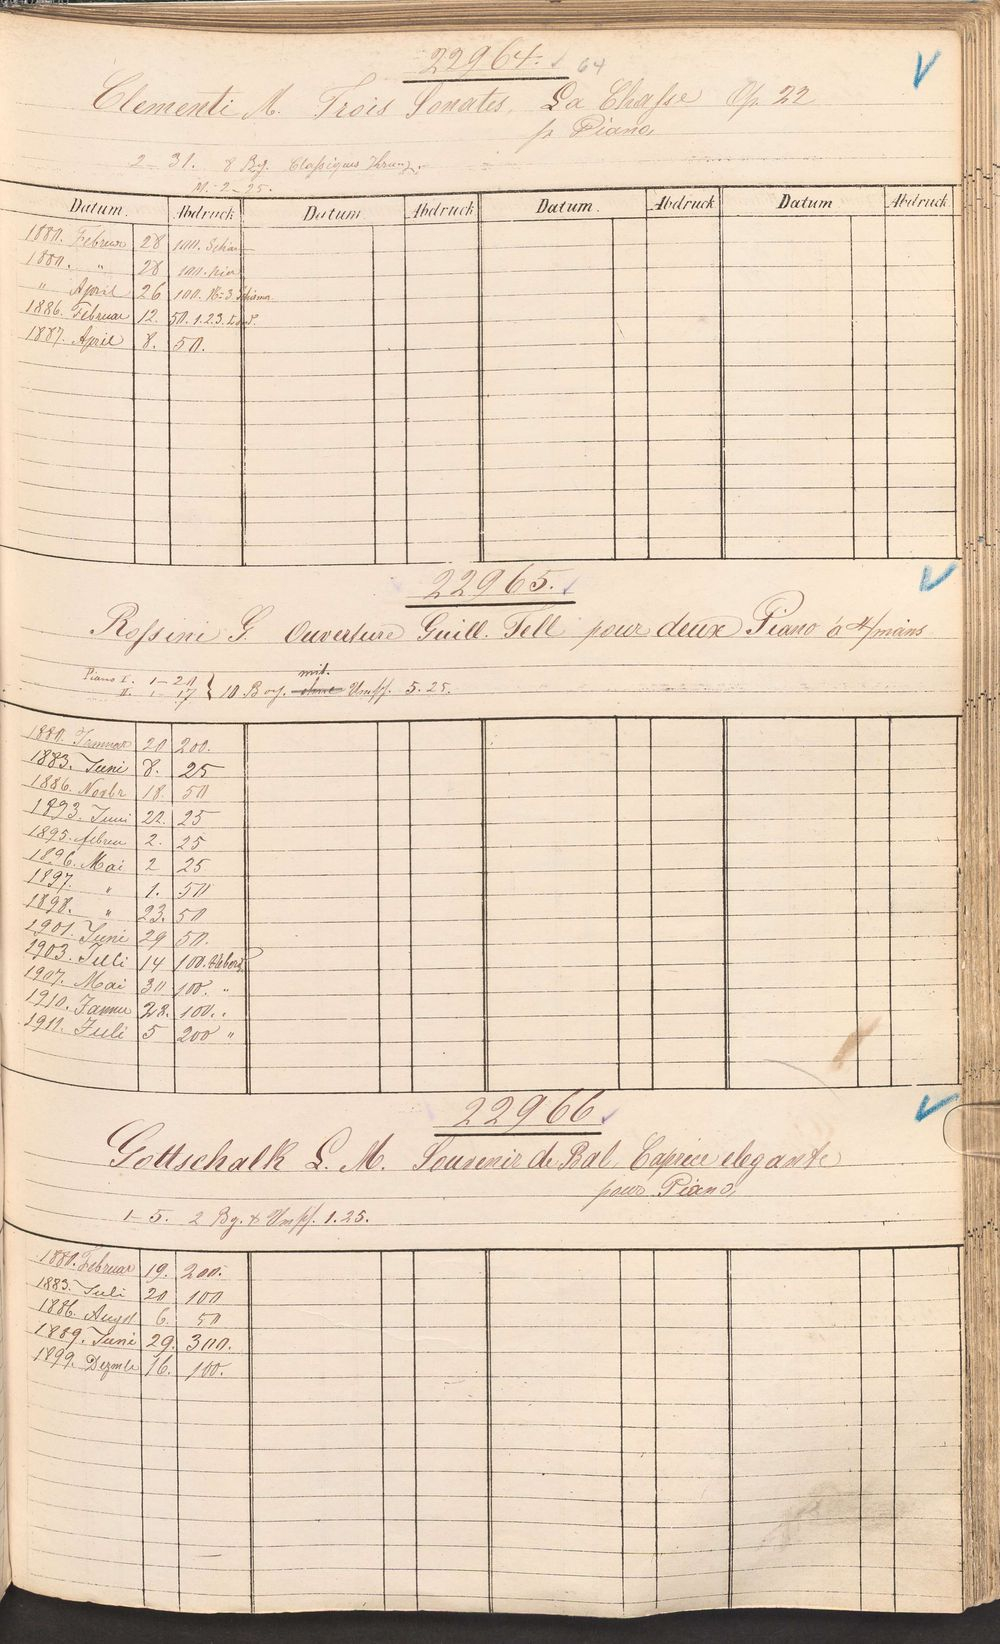 22964. 64
Clementi M. Trois Sonates, La Chasse Op. 22
pr Piano,
2–31. 8 Bg. Classiques
N. 2–25.
Datum. Abdruck Datum Abdruck Datum. Abdruck Datum Abdruck
1880. Februar 28 100.
1880. " 28 100.
" April 26 100. No 3
1886. Februar 12. 50. 1.2.3.
1887. April 8. 50.
22965.
Rossini G. Ouverture Guill. Tell pour deux Piano à 4/mains
Piano I. 1–20 mit.
II. 1–17 } 10 Bog. ohne Umschl. 5.25.
1880. Januar 20 200.
1883. Juni 8. 25
1886. Novbr 18. 50
1893. Juni 22. 25
1895. febru 2. 25
1896. Mai 2 25
1897. " 1. 50
1898. " 23. 50
1901. Juni 29 50.
1903. Juli 14 100.
1907. Mai 30 100. "
1910. Januar 28. 100. "
1911. Juli 5 200 "
22966
Gottschalk L. M. Souvenir de Bal, Caprice elegante
pour Piano,
1–5. 2 Bg. & Umschl. 1.25.
1880. Februar 19. 200.
1883. Juli 20 100
1886. Augst 6. 50
1889. Juni 29. 300.
1899. Dezmbr 16. 100.